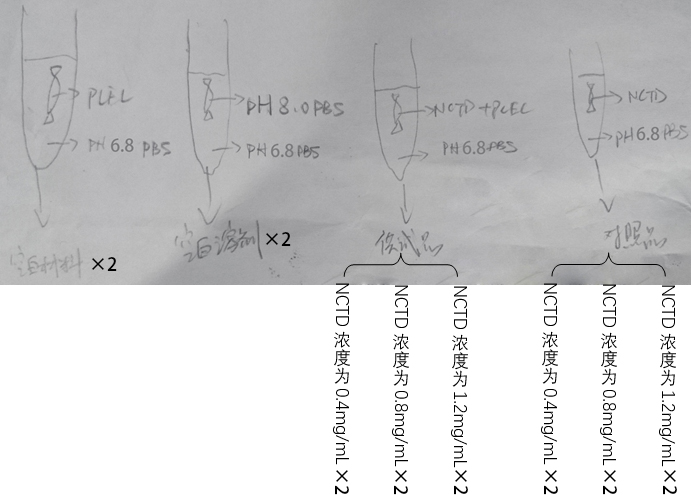 PLEL
PH 6.8 PBS
空白材料 ×2
PH 8.0 PBS
PH 6.8 PBS
空白溶剂 ×2
NCTD+PLEL
PH 6.8 PBS
供试品
NCTD 浓度为 0.4mg/mL×2
NCTD 浓度为 0.8mg/mL×2
NCTD 浓度为 1.2mg/mL×2
NCTD
PH 6.8 PBS
对照品
NCTD 浓度为 0.4mg/mL×2
NCTD 浓度为 0.8mg/mL×2
NCTD 浓度为 1.2mg/mL×2